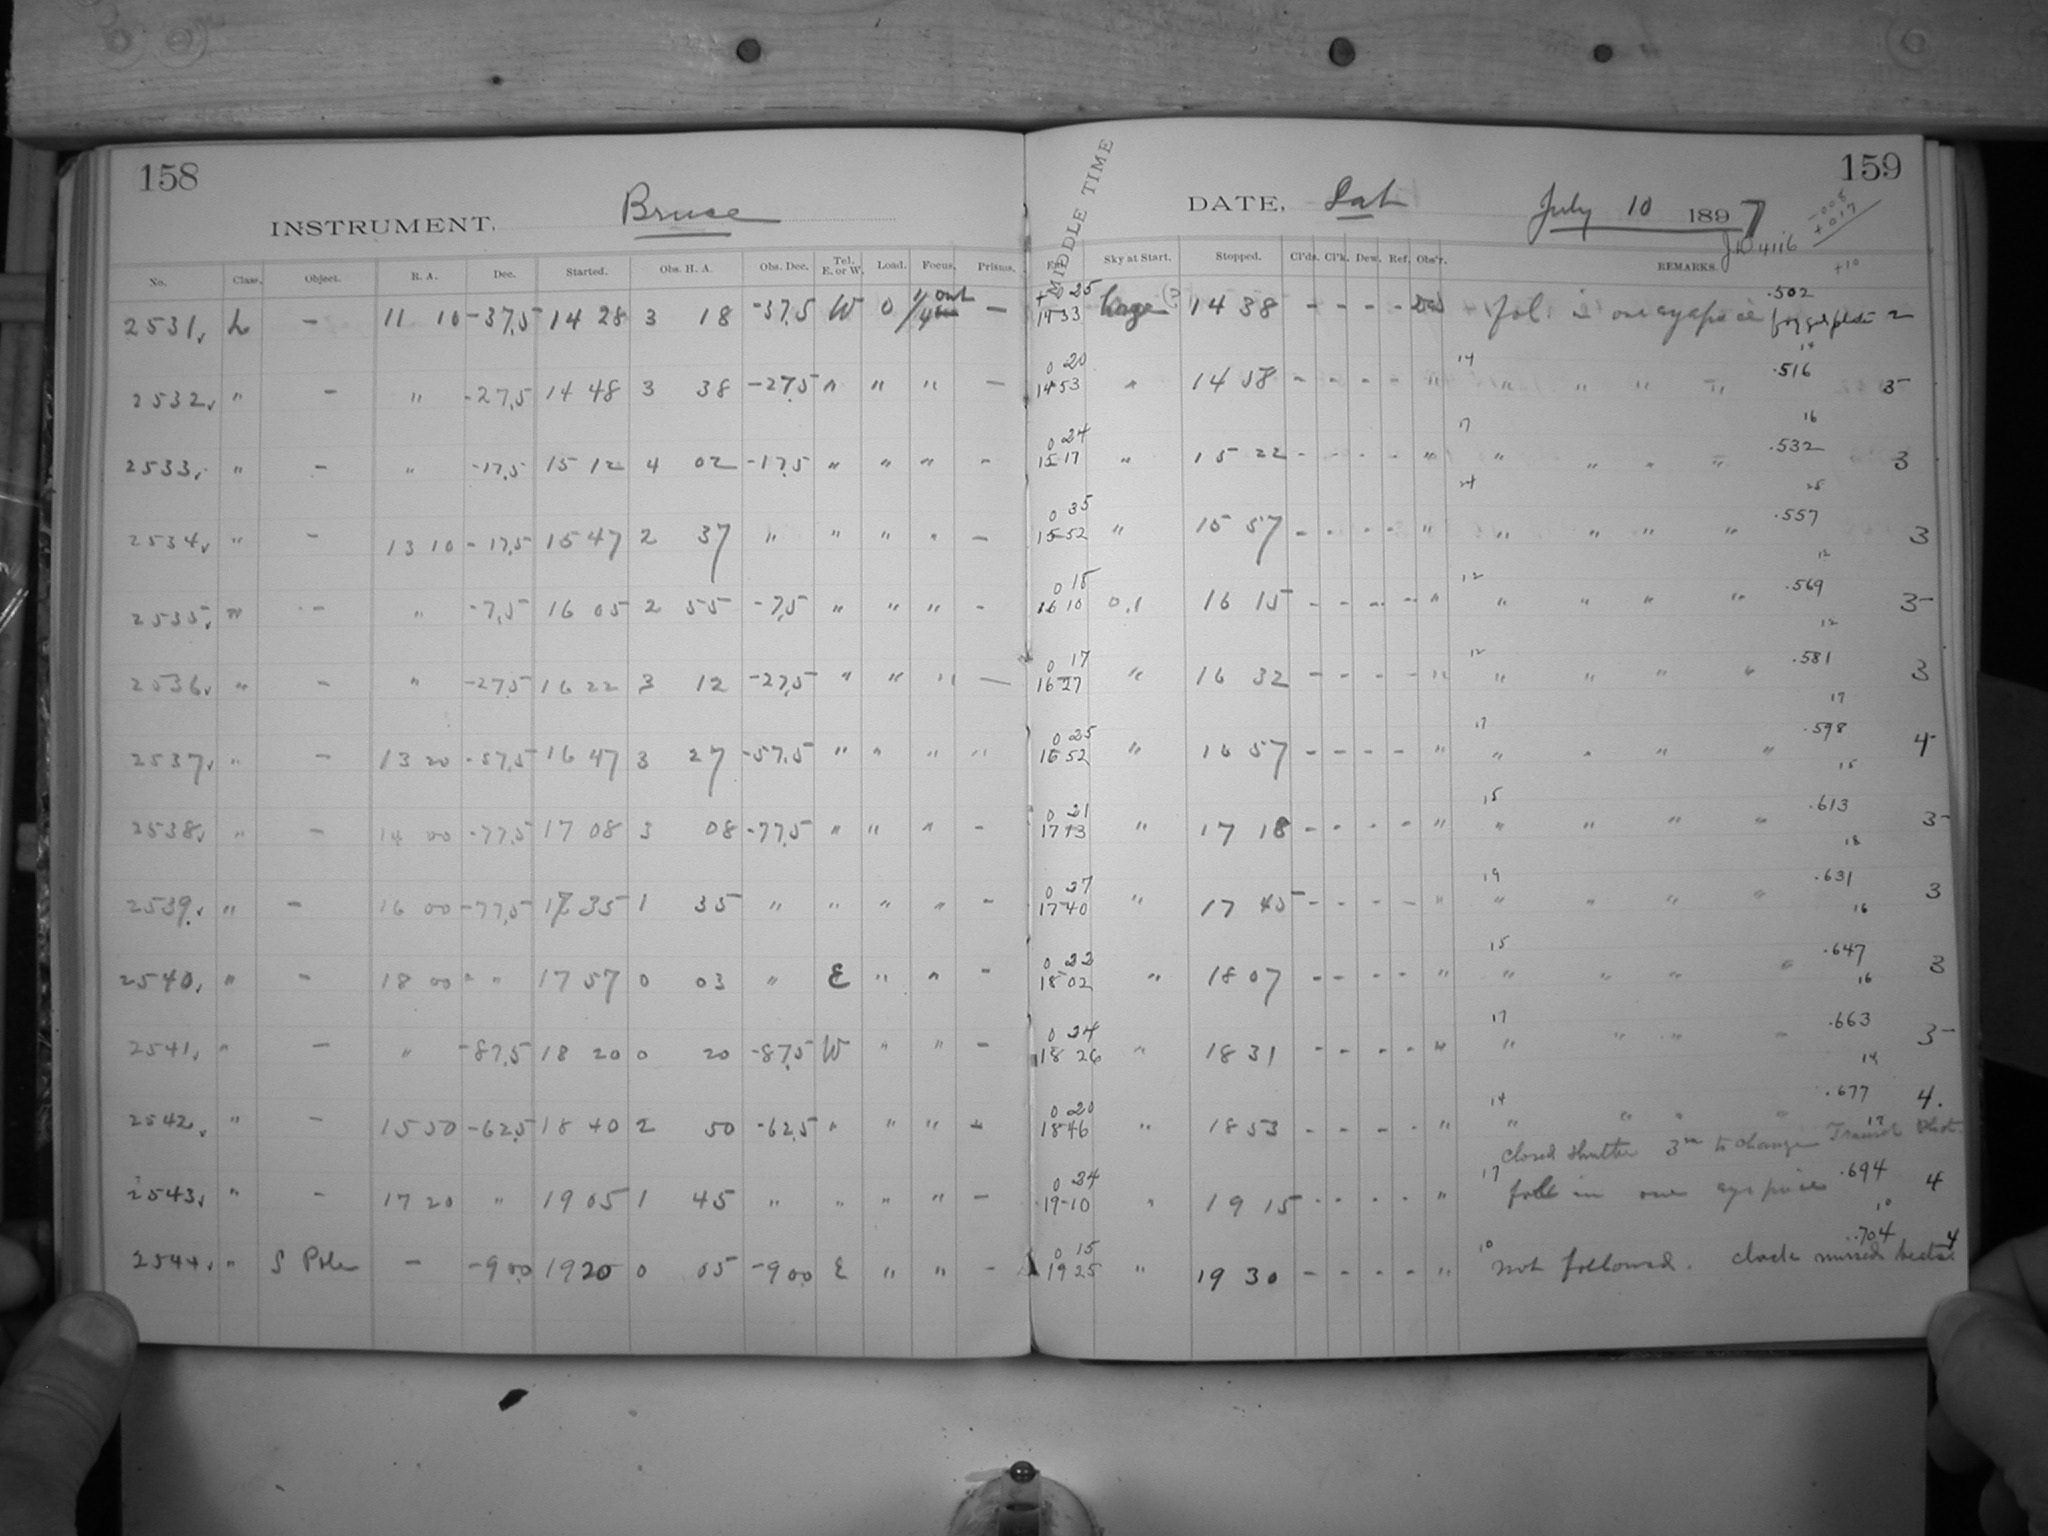 158
INSTRUMENT, Bruce
No. Class. Object. R. A. Dec. Started. Obs. H. A. Obs. Dec. Tel. E. or W. Load. Focus. Prisms.
2531 L — 11 10 -37.5 14 28 3 18 -37.5 W 0 1/4 out —
2532 " — " -27.5 14 48 3 38 -27.5 " " " —
2533 " — " -17.5 15 12 4 02 -17.5 " " " -
2534 " — 13 10 -17.5 15 47 2 37 " " " " —
2535 " — " -7.5 16 05 2 55 -7.5 " " " -
2536 " — " -27.5 16 22 3 12 -27.5 " " " —
2537 " — 13 20 -57.5 16 47 3 27 -57.5 " " " "
2538 " — 14 00 -77.5 17 08 3 08 -77.5 " " " -
2539 " — 16 00 -77.5 17 35 1 35 " " " " -
2540 " — 18 00 " " 17 57 0 03 " E " " -
2541 " — " -87.5 18 20 0 20 -87.5 W " " -
2542 " — 15 50 -62.5 18 40 2 50 -62.5 " " " -
2543 " — 17 20 " 19 05 1 45 " " " " -
2544 " S Pole — -90.0 19 20 0 05 -90.0 E " " -
159
MIDDLE TIME
DATE, Sat July 10 1897
-.008
+.017
JD 4116
+10
Sky at Start. Stopped. Cl'ds. Cl'k. Dew. Ref. Obs'r. REMARKS.
+0 25 .502
14 33 (?) 14 38 - - - - fol. in one eyepiece fogged plate 2
14
0 20 14 .516
14 53 " 14 58 - - - - " " " " " 3-
16
0 24 17 .532
15 17 " 15 22 - - - - " " " " " 3
25
0 35 24 .557
15 52 " 15 57 - - - - " " " " " 3
12
0 18 12 .569
16 10 0.1 16 15 - - - - " " " " " 3-
12
0 17 12 .581
16 27 " 16 32 - - - - " " " " " 3
17
0 25 17 .598
16 52 " 16 57 - - - - " " " " " 4-
15
0 21 15 .613
17 13 " 17 18 - - - - " " " " " 3-
18
0 27 19 .631
17 40 " 17 45 - - - - " " " " " 3
16
0 22 15 .647
18 02 " 18 07 - - - - " " " " " 3
16
0 24 17 .663
18 26 " 18 31 - - - - " " " " " 3-
14
0 20 14 .677
18 46 " 18 53 - - - - " " " " " 4.
17
closed shutter 3m to change Transit
0 24 17 .694
19 10 " 19 15 - - - - " foll in one eyepiece 4
10
0 15 10 .704
19 25 " 19 30 - - - - " not followed. clock missed beats. 4